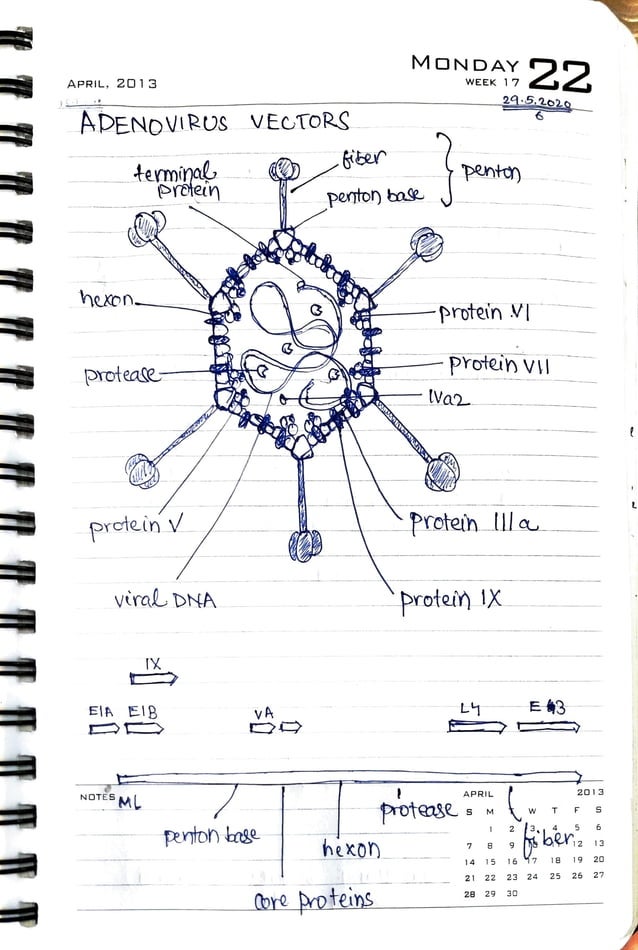 APRIL, 2013
MONDAY 22
WEEK 17
29.5.2020
6
ADENOVIRUS VECTORS
terminal
protein
fiber
penton base
penton
hexon
protein VI
protease
protein VII
IVa2
protein V
protein IIIa
viral DNA
protein IX
IX
E1A
E1B
VA
L4
E 3
NOTES
ML
penton base
core proteins
hexon
protease
fiber
APRIL 2013
S M W T F S
1 2 3 4 5 6
7 8 9 12 13
14 15 16 17 18 19 20
21 22 23 24 25 26 27
28 29 30